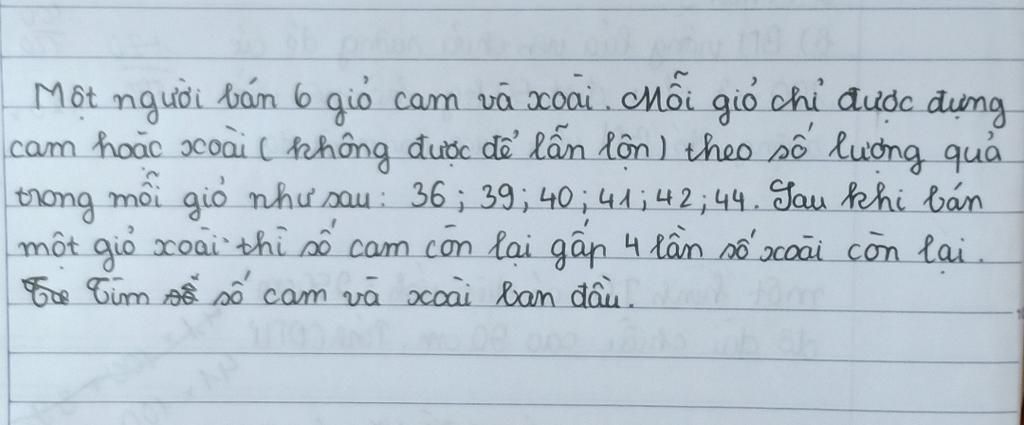 Một người bán 6 giỏ cam và xoài. Mỗi giỏ chỉ được đựng
cam hoặc xoài ( không được để lẫn lộn) theo số lượng quả
trong mỗi giỏ như sau: 36; 39; 40; 41; 42; 44. Sau khi bán
một giỏ xoài thì số cam còn lại gấp 4 lần số xoài còn lại.
Tìm số cam và xoài ban đầu.